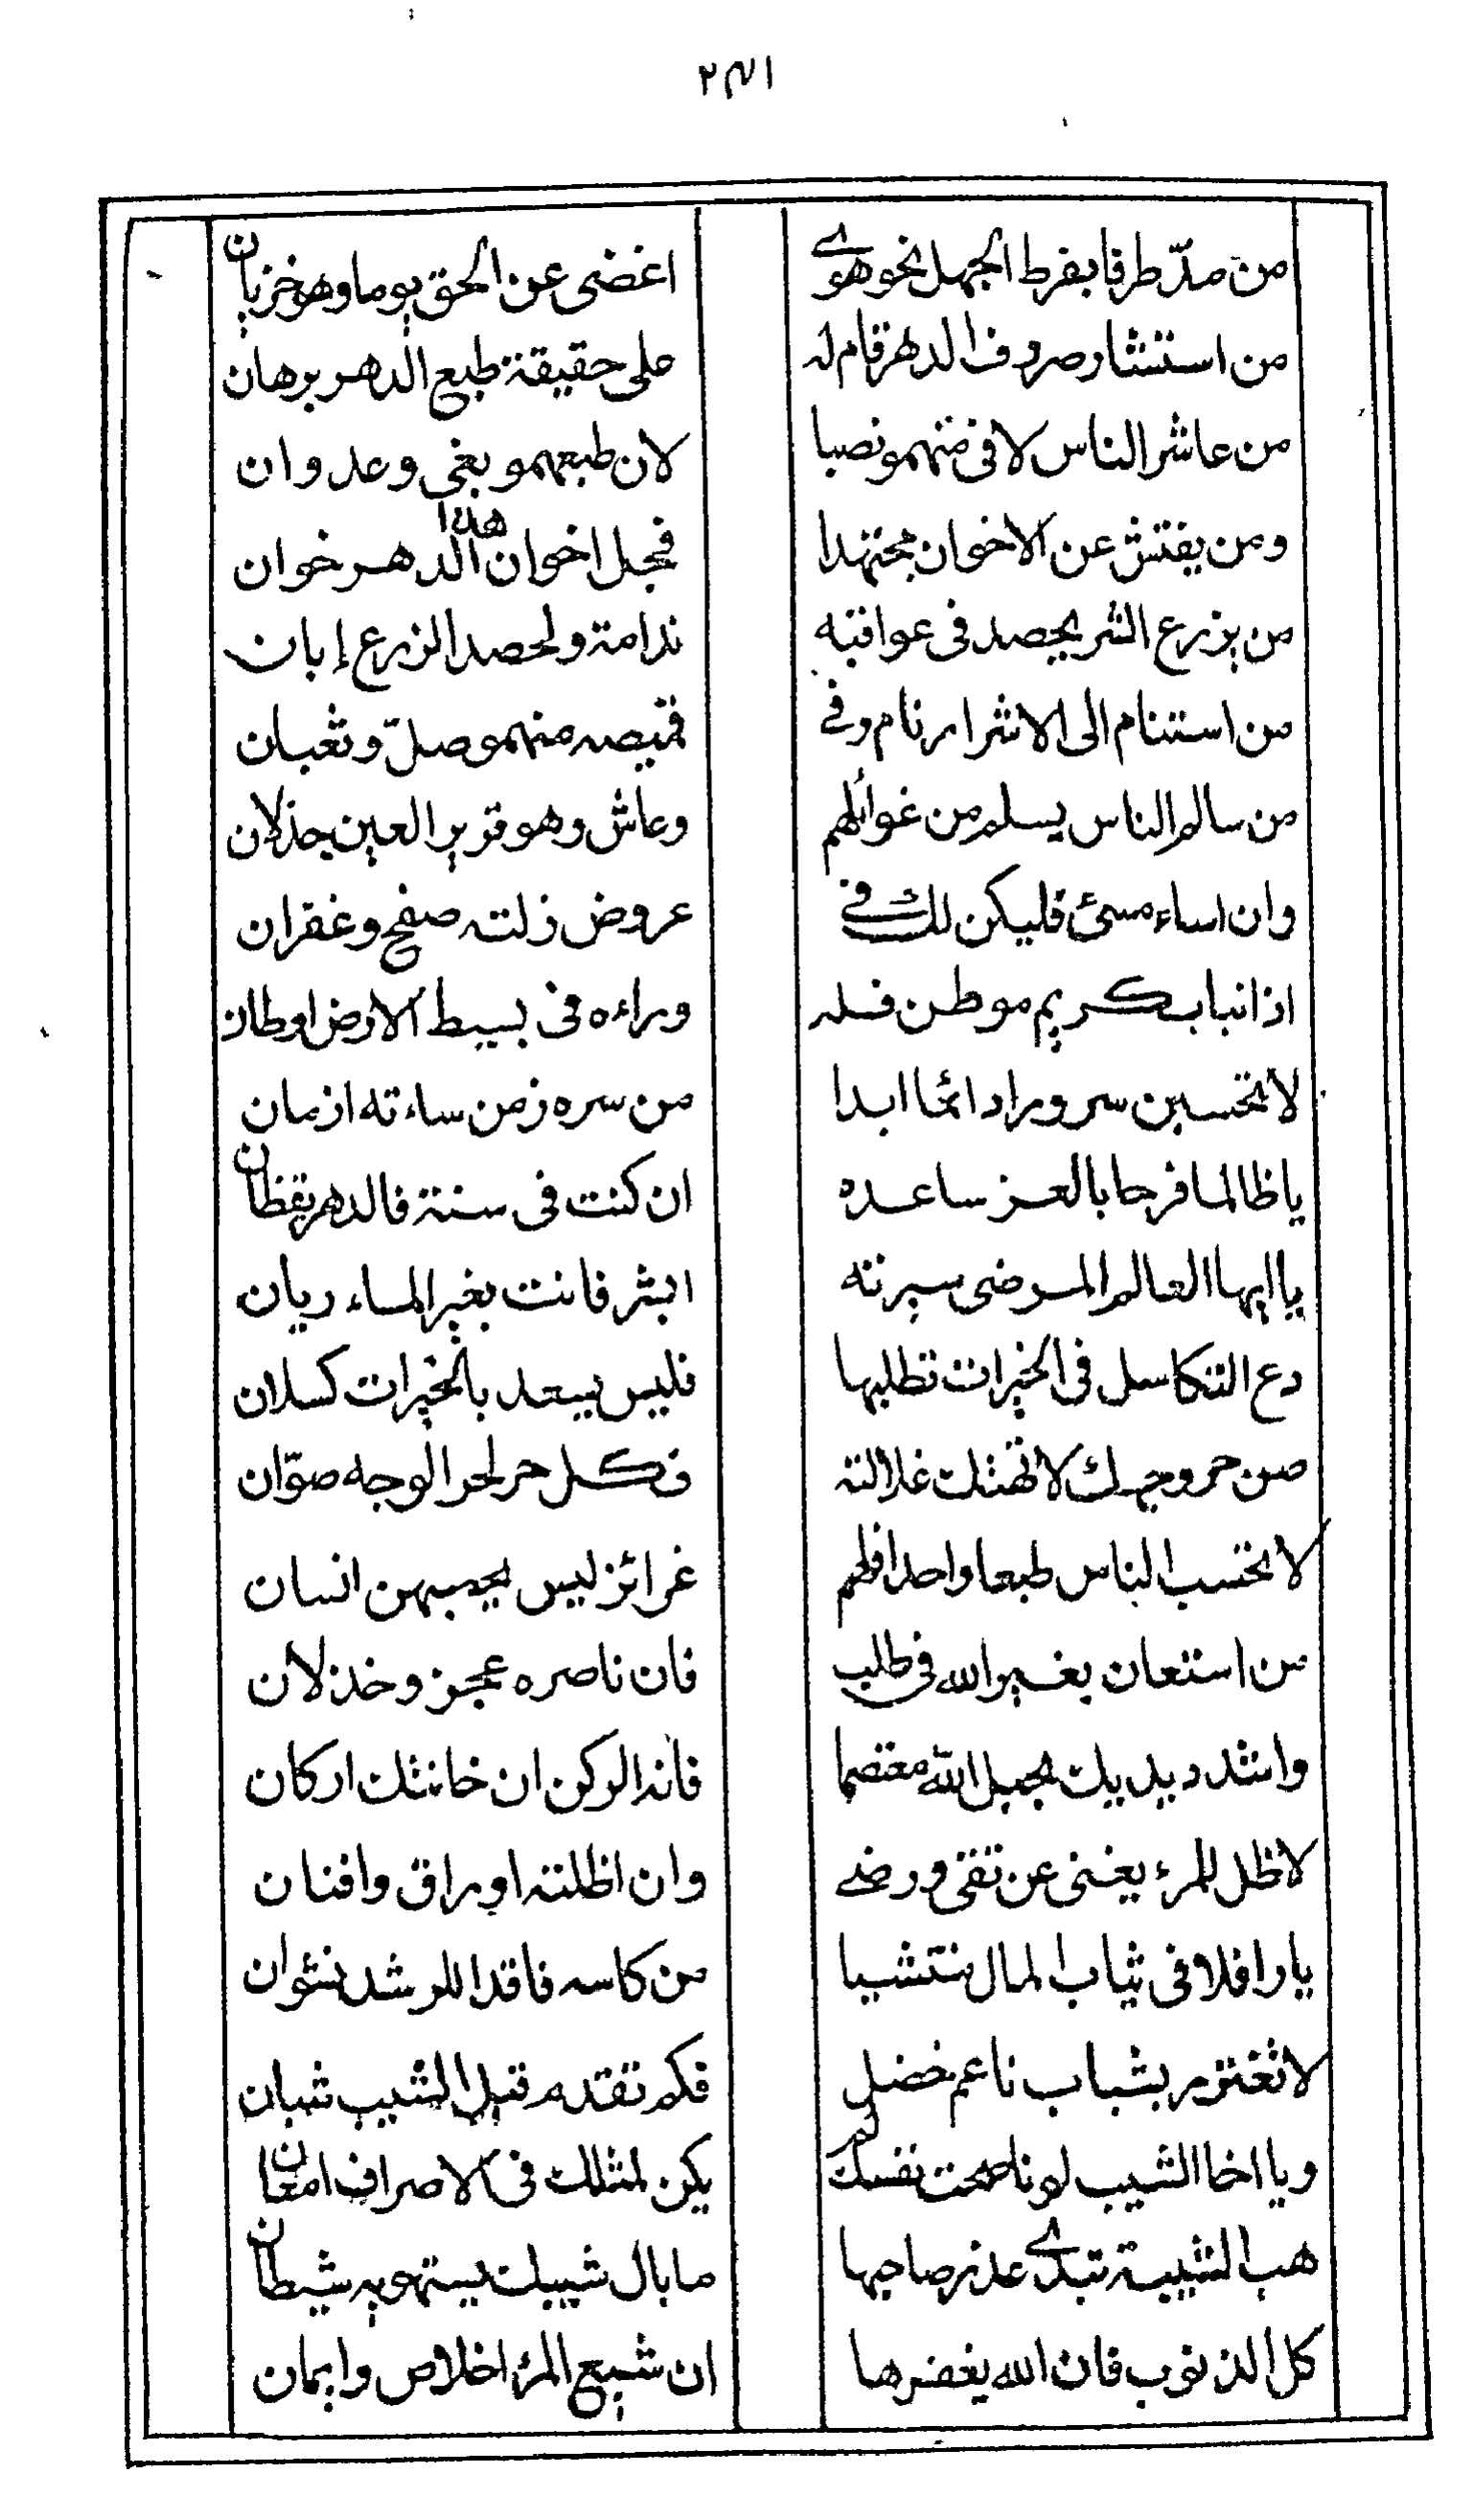 ٢٣١
من مدّ طرفا بفرط الجهل نحو هوى اغضى عن الحق يوما وهو خزيان
من استشار صروف الدهر قام له على حقيقة طبع الدهر برهان
من عاشر الناس لاقى منهمو نصبا لان طبعهمو بغى وعدوان
ومن يفتش عن الاخوان مجتهدا فجل اخوان هذا الدهر خوان
من يزرع الشر يحصد فى عواقبه ندامة ولحصد الزرع إبان
من استنام الى الاشرار نام وفى قميصه منهمو صلّ وثعبان
من سالم الناس يسلم من غوائلهم وعاش وهو قرير العين جذلان
وان اساء مسئ فليكن لك فى عروض زلته صفح وغفران
اذا نبا بكريم موطن فله وراءه فى بسيط الارض اوطان
لا تحسبن سرورا دائما ابدا من سره زمن ساءته ازمان
يا ظالما فرحا بالعز ساعده ان كنت فى سنة فالدهر يقظان
يا ايها العالم المرضى سيرته ابشر فانت بغير الماء ريان
دع التكاسل فى الخيرات تطلبها فليس يسعد بالخيرات كسلان
صن حر وجهك لا تهتك غلالته فكل حر لحر الوجه صوّان
لا تحسب الناس طبعا واحدا فلهم غرائز ليس يحصيهن انسان
من استعان بغير الله فى طلب فان ناصره عجز وخذلان
واشدد يديك بحبل الله معتصما فانه الركن ان خانتك اركان
لا ظل للمرء يغنى عن تقى ورضى وان اظلته اوراق وافنان
يا رافلا فى ثياب المال منتشيا من كاسه فاقد اللرشد نشوان
لا تغترر بشباب ناعم خضل فكم تقدم قبل الشيب شبان
ويا اخا الشيب لو ناصحت نفسك لم يكن لمثلك فى الاصراف امعان
هب الشبيبة تبدى عذر صاحبها ما بال شيبك يستهويه شيطان
كل الذنوب فان الله يغفرها ان شيع المرء اخلاص وايمان